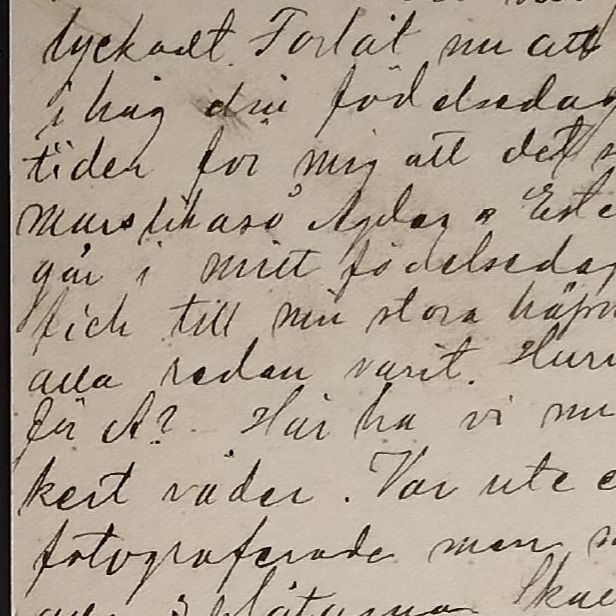 lyckadt. Forlåt nu att
i håg din födelsedag
tiden för mig att det
mars likaså Agdas
går i mitt födelsedag
fick till min stora häpn
alla redan varit. Hur
för A? Här ha vi nu
kert väder. Var ute
fotograferade men